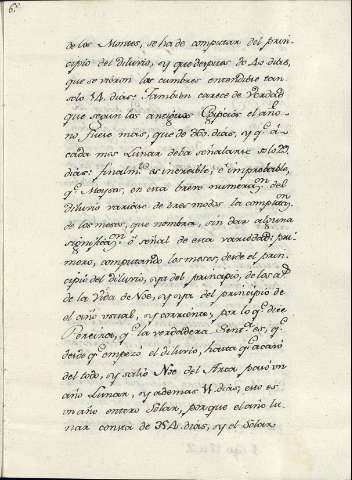 de los Montes, se ha de computar del prin-
cipio del diluvio, y que despues de 40 dias,
que se vieron las cumbres entendible tan
solo 14. dias: Tambien carece de verdad
que segun los antiguos Egipcios el año
no fuese mas, que de 360. dias, y q.e à
cada mes Lunar deba señalarse solo
dias: finalm.te es increible, è improbable,
q.e Moyses, en esta breve numerac.on del
diluvio variase de tres modos la comptac.on
de los meses, que nombra, sin dar alguna
significac.on ò señal de esta variedad; pri-
mero, computando los meses, desde el prin-
cipio del diluvio, ya del principio, de los a.s
de la Vida de Noe, y ya del principio de
el año usual, y corriente; por lo q.e dice
Pereirio, q.e la verdadera Sent.a es, q.e
desde q.e empezò el diluvio, hasta q.e acabò
del todo, y saliò Noe del Arca, pasò un
año Lunar, y ademas 11. dias; esto es
un año entero Solar, porque el año lu-
nar consta de 354. dias, y el Solar